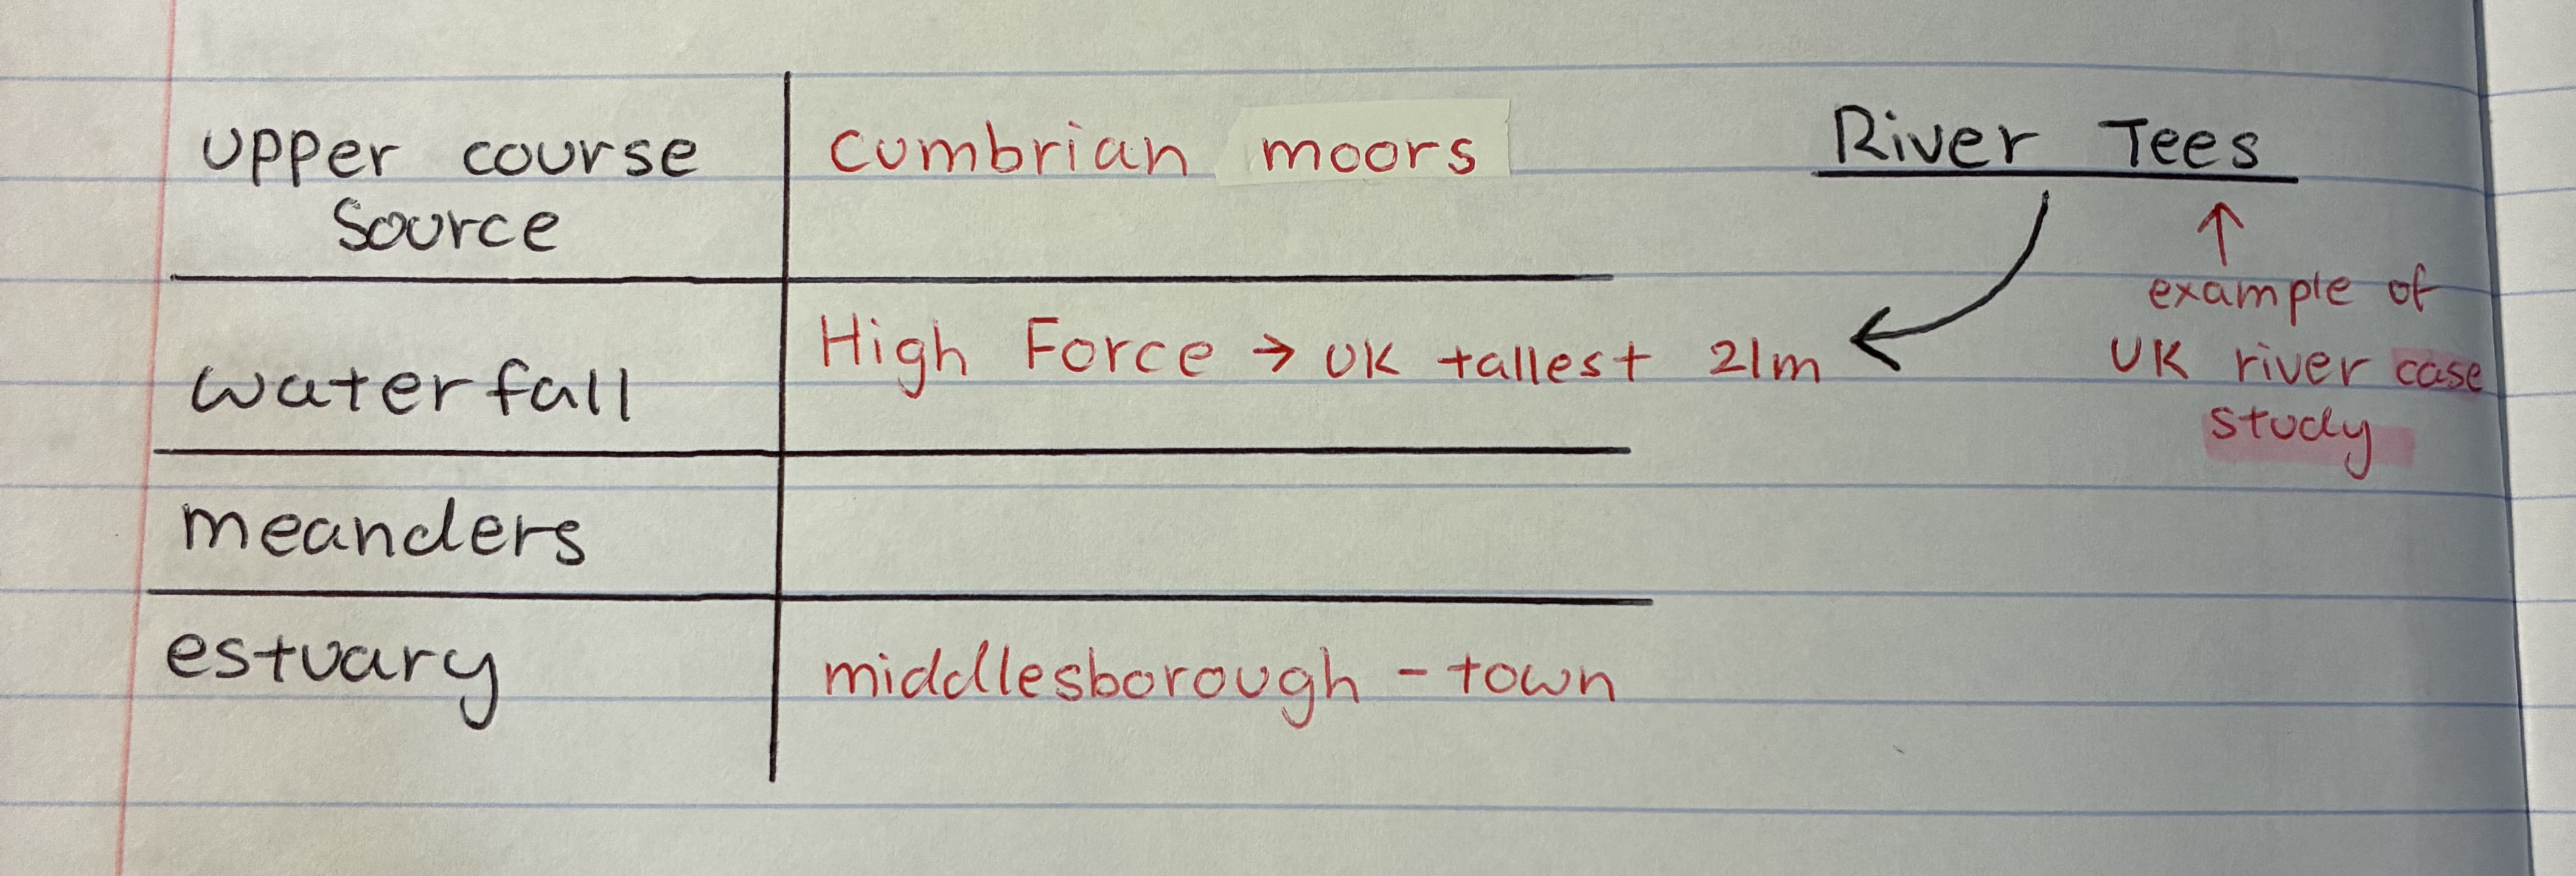 upper course
Source
cumbrian moors
waterfall
High Force → UK tallest 21m
meanders
estuary
middlesborough - town
River Tees
↑
example of
UK river case
study